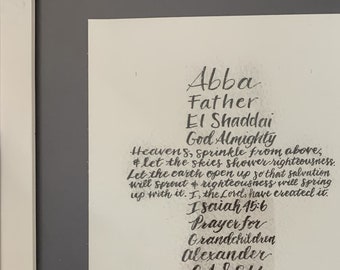 Abba
Father
El Shaddai
God Almighty
Heavens, sprinkle from above,
& let the skies shower righteousness.
Let the earth open up so that salvation
will sprout & righteousness will spring
up with it. I, the Lord, have created it.
Isaiah 45:6
Prayer for
Grandchildren
Alexander